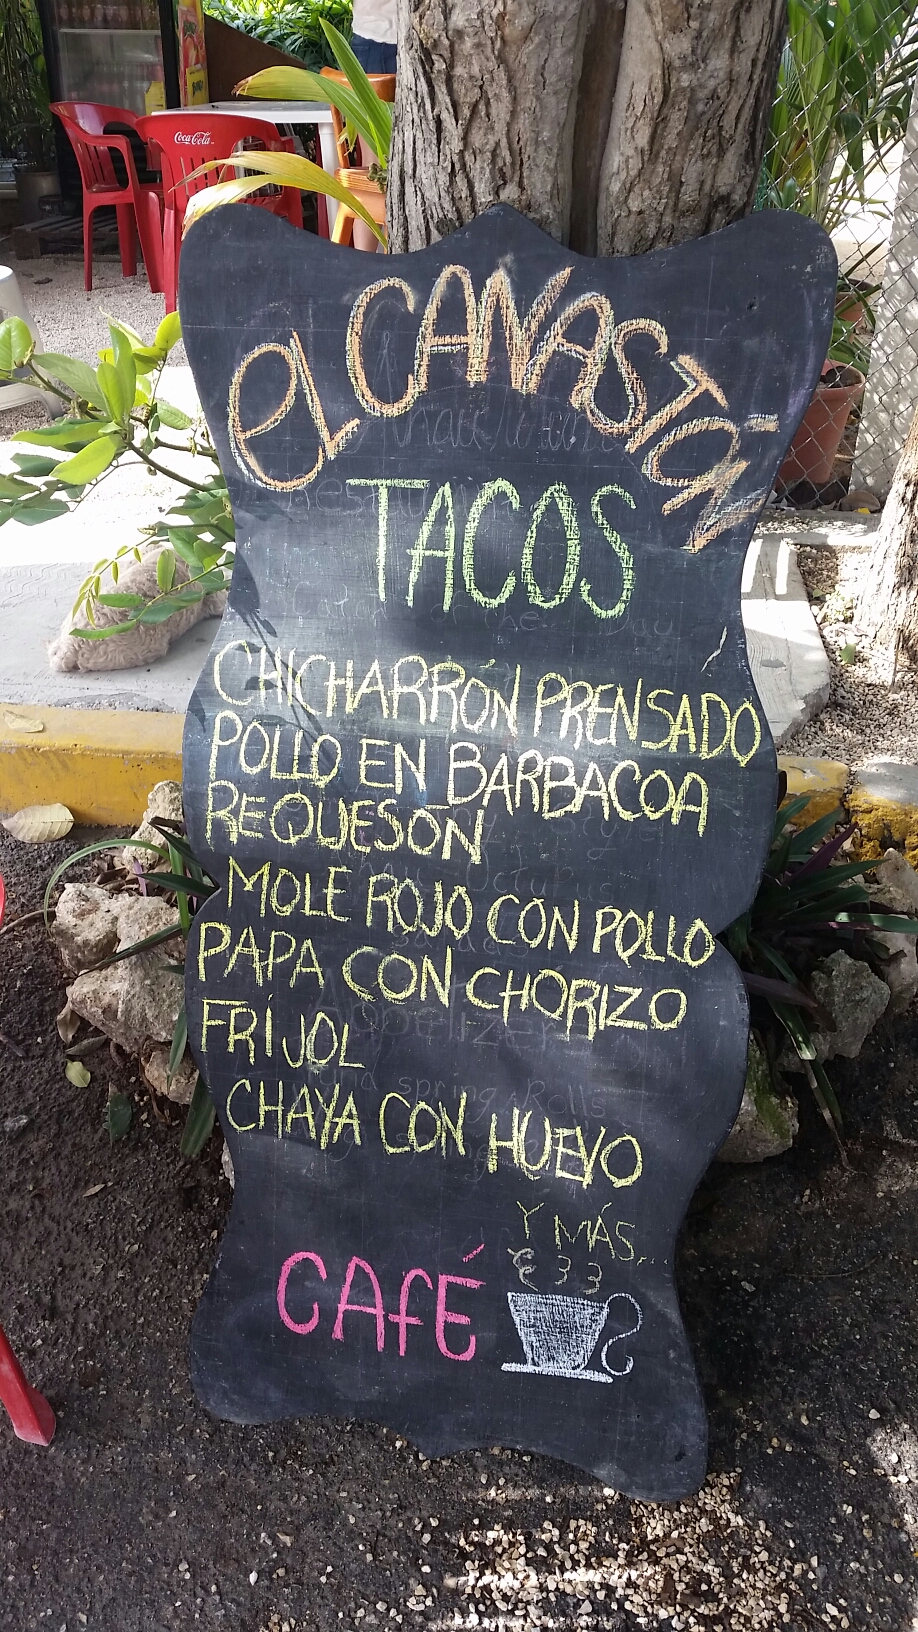 Coca-Cola
EL CANASTÓN
TACOS
CHICHARRÓN PRENSADO
POLLO EN BARBACOA
REQUESON
MOLE ROJO CON POLLO
PAPA CON CHORIZO
FRIJOL
CHAYA CON HUEVO
Y MÁS...
CAFÉ